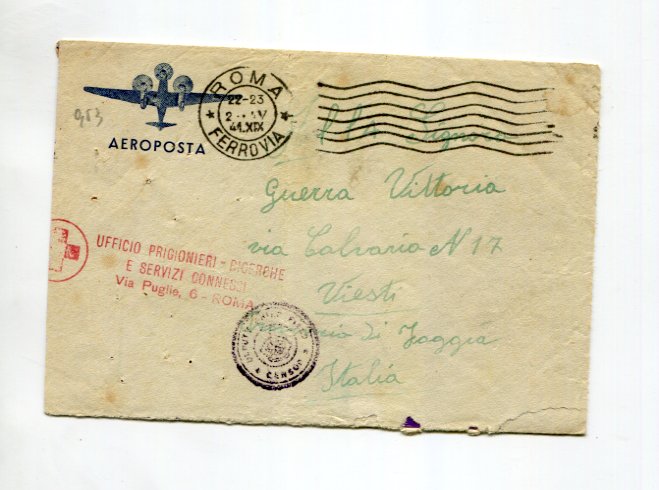 953
AEROPOSTA
ROMA
22-23
41.XIX
FERROVIA
Alla Signora
Guerra Vittoria
via Calvario N 17
Viesti
di Foggia
Italia
UFFICIO PRIGIONIERI - RICERCHE
E SERVIZI CONNESSI
Via Puglie, 6 - ROMA
DEPUTY CHIEF FIELD
CENSOR